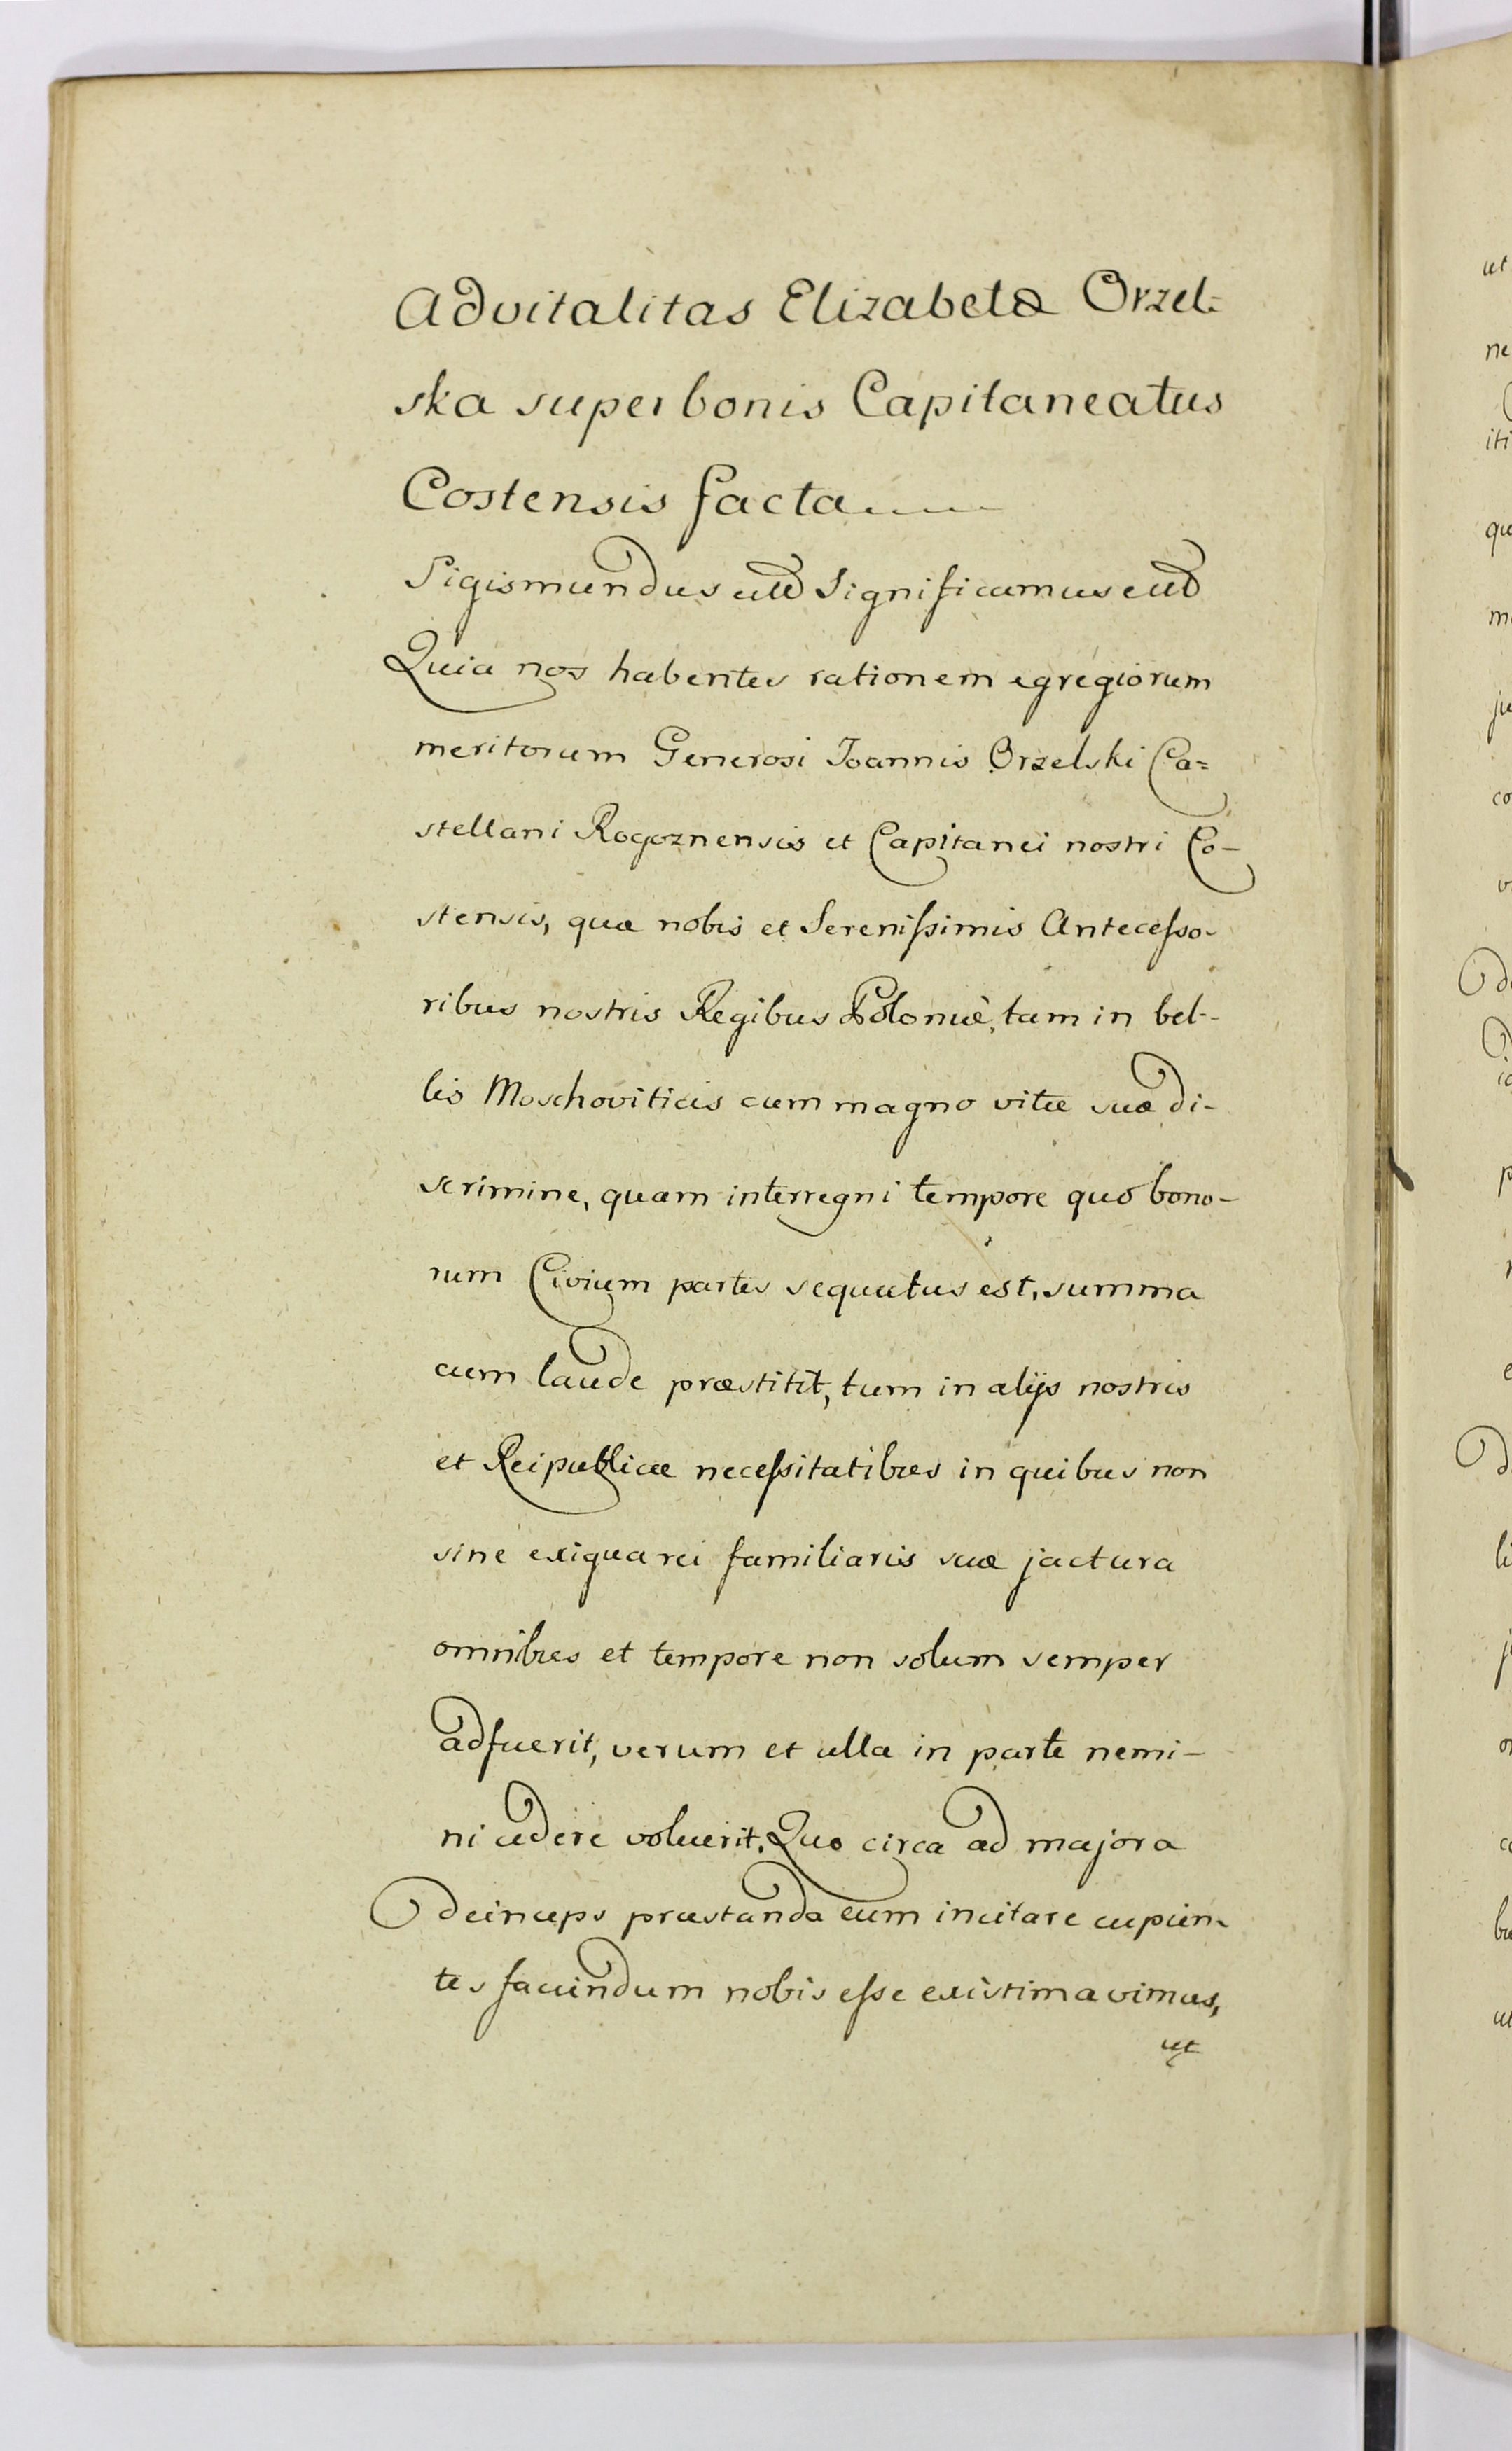 Advitalitas Elizabetæ Orzel-
ska super bonis Capitaneatus
Costensis facta
Sigismundus Significamus
Quia nos habentes rationem egregiorum
meritorum Generosi Joannis Orzelski Ca=
stellani Rogoznensis et Capitanei nostri Co-
stensis, quæ nobis et Serenissimis Antecesso-
ribus nostris Regibus Poloniæ, tam in bel-
lis Moschoviticis cum magno vitæ suæ di-
scrimine, quam interregni tempore quo bono-
rum Civium partes sequutus est, summa
cum laude præstitit, tum in alijs nostris
et Reipublicæ necessitatibus in quibus non
sine exigua rei familiaris suæ jactura
omnibus et tempore non solum semper
adfuerit, verum et ulla in parte nemi-
ni cedere voluerit. Quo circa ad majora
deinceps præstanda eum incitare cupien-
tes faciendum nobis esse existimavimus,
ut